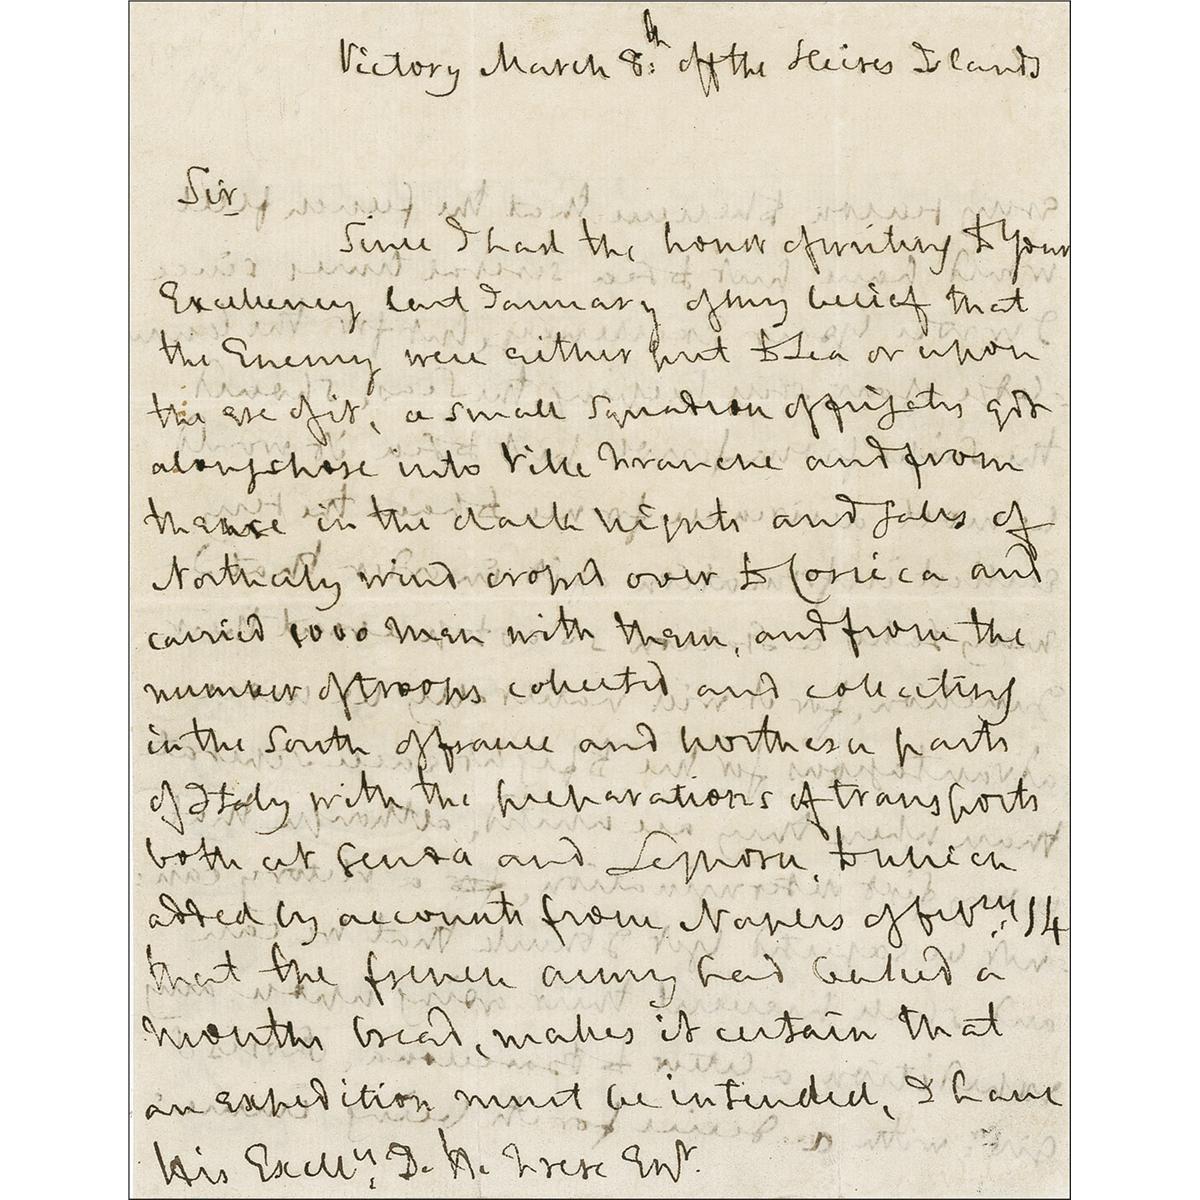 Victory March 8:th off the Heires Islands
Sir
Since I had the honor of writing to Your
Excellency last January of my belief that
the Enemy were either put to Sea or upon
the eve of it, a small Squadron of frigates got
alongshore into Ville Franche and from
thence in the dark nights and Gales of
Northerly wind cross'd over to Corsica and
carried 1000 men with them, and from the
number of troops collected and collecting
in the South of France and northern parts
of Italy with the preparations of transports
both at Genoa and Leghorn, to which
added by accounts from Naples of Febry: 14
that the french army had baked a
months bread, makes it certain that
an expedition must be intended, I have
His Excelly. D. H. Frere Esqr.